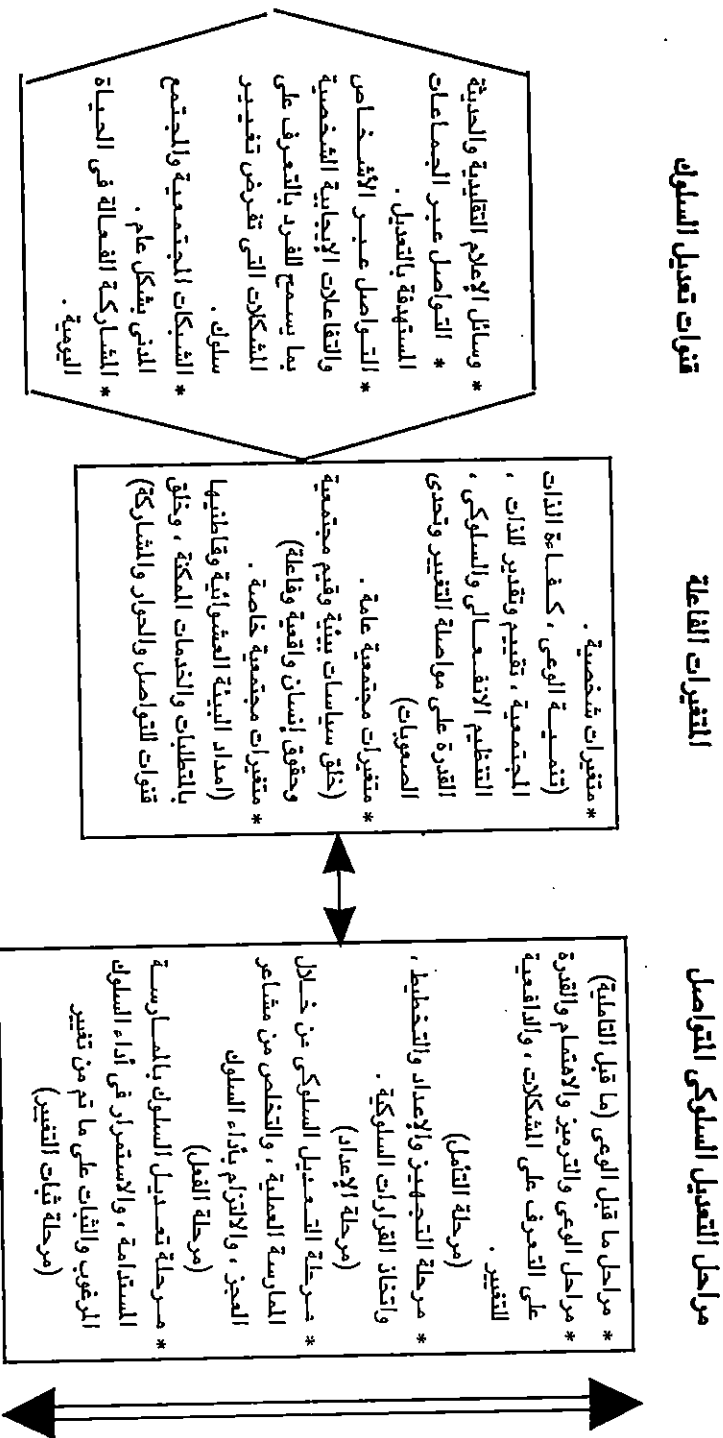 قنوات تعديل السلوك
* وسائل الإعلام التقليدية والحديثة
* التواصل عبر الجماعات
المستهدفة بالتعديل .
* التواصل عبر الأشخاص
والتفاعلات الإيجابية الشخصية
بما يسمح للفرد بالتعرف على
المشكلات التى تفرض تغيير
سلوك .
* الشبكات المجتمعية والمجتمع
المدنى بشكل عام .
* المشاركة الفعالة فى الحياة
اليومية .
المتغيرات الفاعلة
* متغيرات شخصية .
(تنمية الوعى ، كفاءة الذات
المجتمعية ، تقييم وتقدير للذات ،
التنظيم الانفعالى والسلوكى ،
القدرة على مواصلة التغيير وتحدى
الصعوبات)
* متغيرات مجتمعية عامة .
(خلق سياسات بيئية وقيم مجتمعية
وحقوق إنسان واقعية وفاعلة)
* متغيرات مجتمعية خاصة .
(امداد البيئة العشوائية وقاطنيها
بالمتطلبات والخدمات الممكنة ، وخلق
قنوات للتواصل والحوار والمشاركة)
مراحل التعديل السلوكى المتواصل
* مراحل ما قبل الوعى (ما قبل التاملية)
* مراحل الوعى والترميز والاهتمام والقدرة
على التعرف على المشكلات ، والدافعية
للتغيير .
(مرحلة التأمل)
* مرحلة التجهيز والإعداد والتخطيط ،
واتخاذ القرارات السلوكية .
(مرحلة الإعداد)
* مرحلة التعديل السلوكى من خلال
الممارسة العملية ، والتخلص من مشاعر
العجز ، والالتزام بأداء السلوك
(مرحلة الفعل)
* مرحلة تعديل السلوك بالممارسة
المستدامة ، والاستمرار فى أداء السلوك
المرغوب والثبات على ما تم من تغيير
(مرحلة ثبات التغيير)